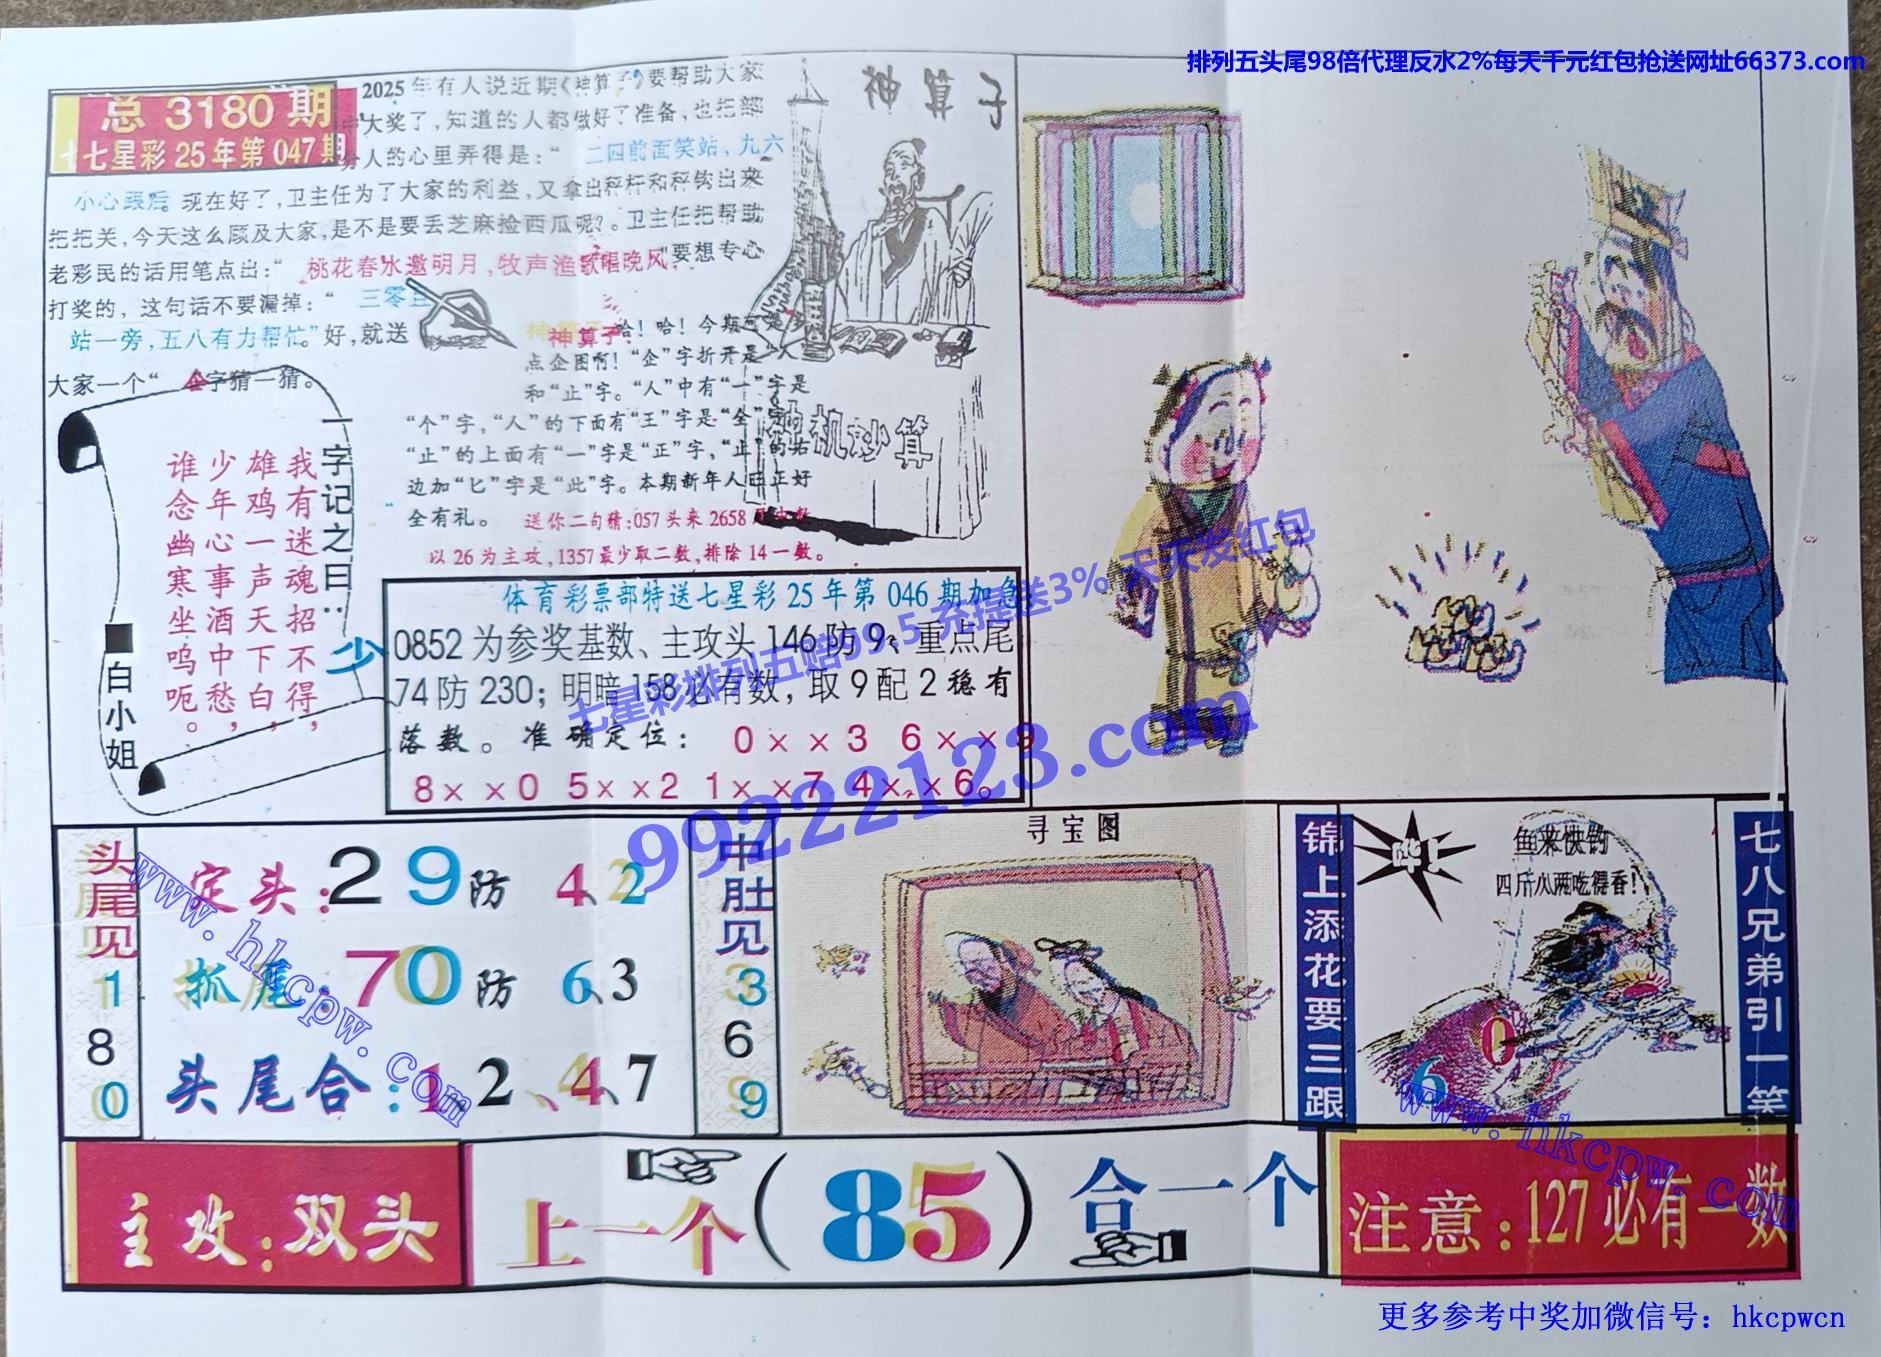 排列五头尾98倍代理反水2%每天千元红包抢送网址66373.com
总 3180 期
七星彩 25 年第 047 期
2025 年有人说近期《神算子》要帮助大家
中大奖了，知道的人都做好了准备，也把部
分人的心里弄得是：“ 二四前面笑站，九六
小心跟后。现在好了，卫主任为了大家的利益，又拿出秤杆和秤钩出来
把把关，今天这么顾及大家，是不是要丢芝麻捡西瓜呢？。卫主任把帮助
老彩民的话用笔点出：“ 桃花春水邀明月，牧声渔歌唱晚风，”要想专心
打奖的，这句话不要漏掉：“ 三零且
站一旁，五八有力帮忙。”好，就送
大家一个“ 企字猜一猜。
神算子
神算子：哈！哈！今期可是
点企图啊！“企”字折开是“人”
和“止”字。“人”中有“一”字是
“个”字，“人”的下面有“王”字是“全”字，
“止”的上面有“一”字是“正”字，“止”的右
边加“匕”字是“此”字。本期新年人正正好
全有礼。 送你二句猜：057 头来 2658
以 26 为主攻，1357 最少取二数，排除 14 一数。
神机妙算
一字记之曰：
少
我有迷魂招不得，
雄鸡一声天下白，
少年心事酒中愁，
谁念幽寒坐呜呃。
白小姐
体育彩票部特送七星彩 25 年第 046 期加急
0852 为参奖基数、主攻头 146 防 9、重点尾
74 防 230；明暗 158 必有数，取 9 配 2 稳有
落数。准确定位： 0××3 6××9
8××0 5××2 1××7 4××6。
七星彩排列五赔99.5 充提送3% 天天发红包
99222123.com
头尾见
1
8
0
定头：29防 4、2
抓尾：70防 6、3
头尾合：1、2、4、7
中肚见
3
6
9
寻宝图
锦上添花要三跟
哗！
鱼来快钓
四斤八两吃得香！
6
0
七八兄弟引一笑
www.hkcpw.com
www.hkcpw.com
主攻：双头
上一个（85）合一个
注意：127 必有一数
更多参考中奖加微信号：hkcpwcn